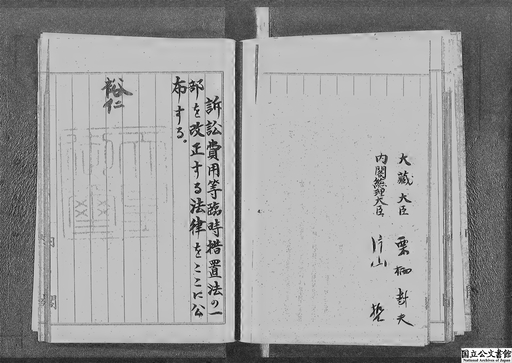 訴訟費用等臨時措置法の一
部を改正する法律をここに公
布する。
裕仁
大蔵大臣 栗栖赳夫
内閣総理大臣 片山哲
国立公文書館
National Archives of Japan